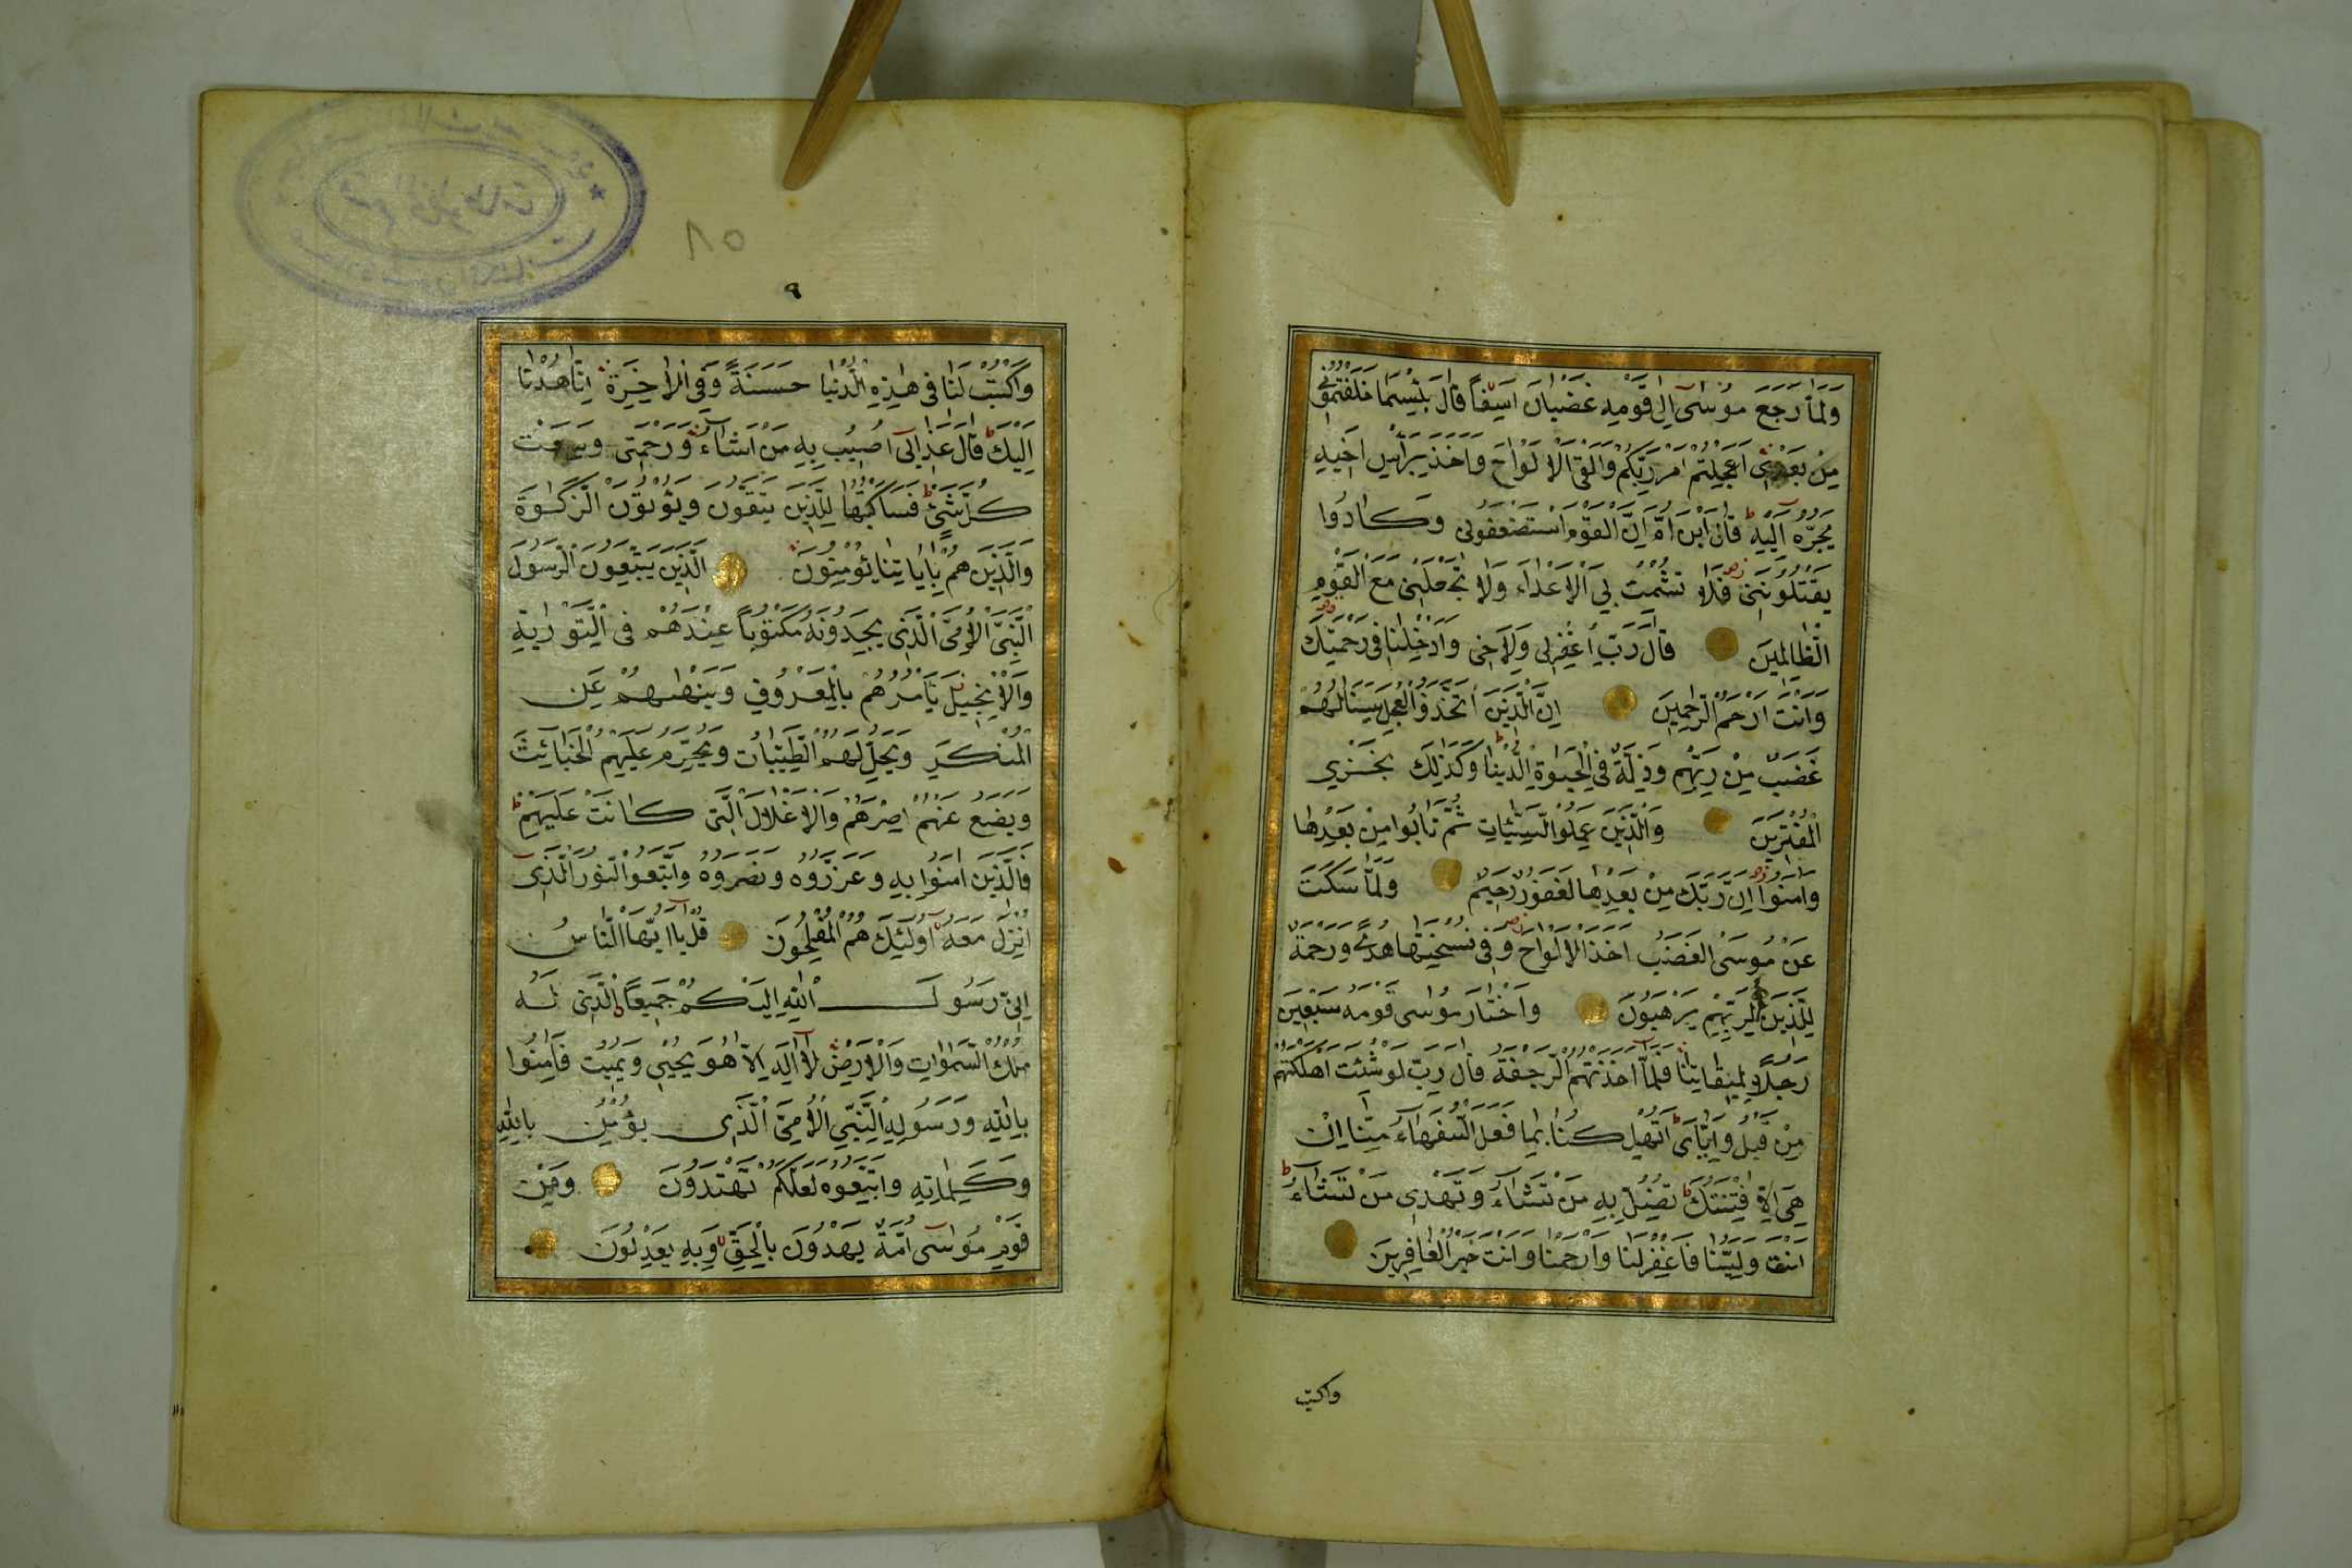 وَلَمَّا رَجَعَ مُوسَىٰ إِلَىٰ قَوْمِهِ غَضْبَانَ اَسِفًا قَالَ بِئْسَمَا خَلَفْتُمُونِي
مِنْ بَعْدِي اَعَجِلْتُمْ اَمْرَ رَبِّكُمْ وَاَلْقَى الْاَلْوَاحَ وَاَخَذَ بِرَاْسِ اَخِيهِ
يَجُرُّهُ اِلَيْهِ قَالَ ابْنَ اُمَّ اِنَّ الْقَوْمَ اسْتَضْعَفُونِي وَكَادُوا
يَقْتُلُونَنِي فَلَا تُشْمِتْ بِيَ الْاَعْدَاءَ وَلَا تَجْعَلْنِي مَعَ الْقَوْمِ
الظَّالِمِينَ قَالَ رَبِّ اغْفِرْ لِي وَلِاَخِي وَاَدْخِلْنَا فِي رَحْمَتِكَ
وَاَنْتَ اَرْحَمُ الرَّاحِمِينَ اِنَّ الَّذِينَ اتَّخَذُوا الْعِجْلَ سَيَنَالُهُمْ
غَضَبٌ مِنْ رَبِّهِمْ وَذِلَّةٌ فِي الْحَيٰوةِ الدُّنْيَا وَكَذٰلِكَ نَجْزِي
الْمُفْتَرِينَ وَالَّذِينَ عَمِلُوا السَّيِّئَاتِ ثُمَّ تَابُوا مِنْ بَعْدِهَا
وَاٰمَنُوا اِنَّ رَبَّكَ مِنْ بَعْدِهَا لَغَفُورٌ رَحِيمٌ وَلَمَّا سَكَتَ
عَنْ مُوسَى الْغَضَبُ اَخَذَ الْاَلْوَاحَ وَفِي نُسْخَتِهَا هُدًى وَرَحْمَةٌ
لِلَّذِينَ هُمْ لِرَبِّهِمْ يَرْهَبُونَ وَاخْتَارَ مُوسٰى قَوْمَهُ سَبْعِينَ
رَجُلًا لِمِيقَاتِنَا فَلَمَّا اَخَذَتْهُمُ الرَّجْفَةُ قَالَ رَبِّ لَوْ شِئْتَ اَهْلَكْتَهُمْ
مِنْ قَبْلُ وَاِيَّايَ اَتُهْلِكُنَا بِمَا فَعَلَ السُّفَهَاءُ مِنَّا اِنْ
هِيَ اِلَّا فِتْنَتُكَ تُضِلُّ بِهَا مَنْ تَشَاءُ وَتَهْدِي مَنْ تَشَاءُ
اَنْتَ وَلِيُّنَا فَاغْفِرْ لَنَا وَارْحَمْنَا وَاَنْتَ خَيْرُ الْغَافِرِينَ
واكتب
٨٥
٩
وَاكْتُبْ لَنَا فِي هٰذِهِ الدُّنْيَا حَسَنَةً وَفِي الْاٰخِرَةِ اِنَّا هُدْنَا
اِلَيْكَ قَالَ عَذَابِي اُصِيبُ بِهِ مَنْ اَشَاءُ وَرَحْمَتِي وَسِعَتْ
كُلَّ شَيْءٍ فَسَاَكْتُبُهَا لِلَّذِينَ يَتَّقُونَ وَيُؤْتُونَ الزَّكٰوةَ
وَالَّذِينَ هُمْ بِاٰيَاتِنَا يُؤْمِنُونَ الَّذِينَ يَتَّبِعُونَ الرَّسُولَ
النَّبِيَّ الْاُمِّيَّ الَّذِي يَجِدُونَهُ مَكْتُوبًا عِنْدَهُمْ فِي التَّوْرٰيةِ
وَالْاِنْجِيلِ يَاْمُرُهُمْ بِالْمَعْرُوفِ وَيَنْهٰيهُمْ عَنِ
الْمُنْكَرِ وَيُحِلُّ لَهُمُ الطَّيِّبَاتِ وَيُحَرِّمُ عَلَيْهِمُ الْخَبَائِثَ
وَيَضَعُ عَنْهُمْ اِصْرَهُمْ وَالْاَغْلَالَ الَّتِي كَانَتْ عَلَيْهِمْ
فَالَّذِينَ اٰمَنُوا بِهِ وَعَزَّرُوهُ وَنَصَرُوهُ وَاتَّبَعُوا النُّورَ الَّذِي
اُنْزِلَ مَعَهُ اُولٰئِكَ هُمُ الْمُفْلِحُونَ قُلْ يَا اَيُّهَا النَّاسُ
اِنِّي رَسُولُ اللّٰهِ اِلَيْكُمْ جَمِيعًا الَّذِي لَهُ
مُلْكُ السَّمٰوَاتِ وَالْاَرْضِ لَا اِلٰهَ اِلَّا هُوَ يُحْيِي وَيُمِيتُ فَاٰمِنُوا
بِاللّٰهِ وَرَسُولِهِ النَّبِيِّ الْاُمِّيِّ الَّذِي يُؤْمِنُ بِاللّٰهِ
وَكَلِمَاتِهِ وَاتَّبِعُوهُ لَعَلَّكُمْ تَهْتَدُونَ وَمِنْ
قَوْمِ مُوسٰى اُمَّةٌ يَهْدُونَ بِالْحَقِّ وَبِهِ يَعْدِلُونَ